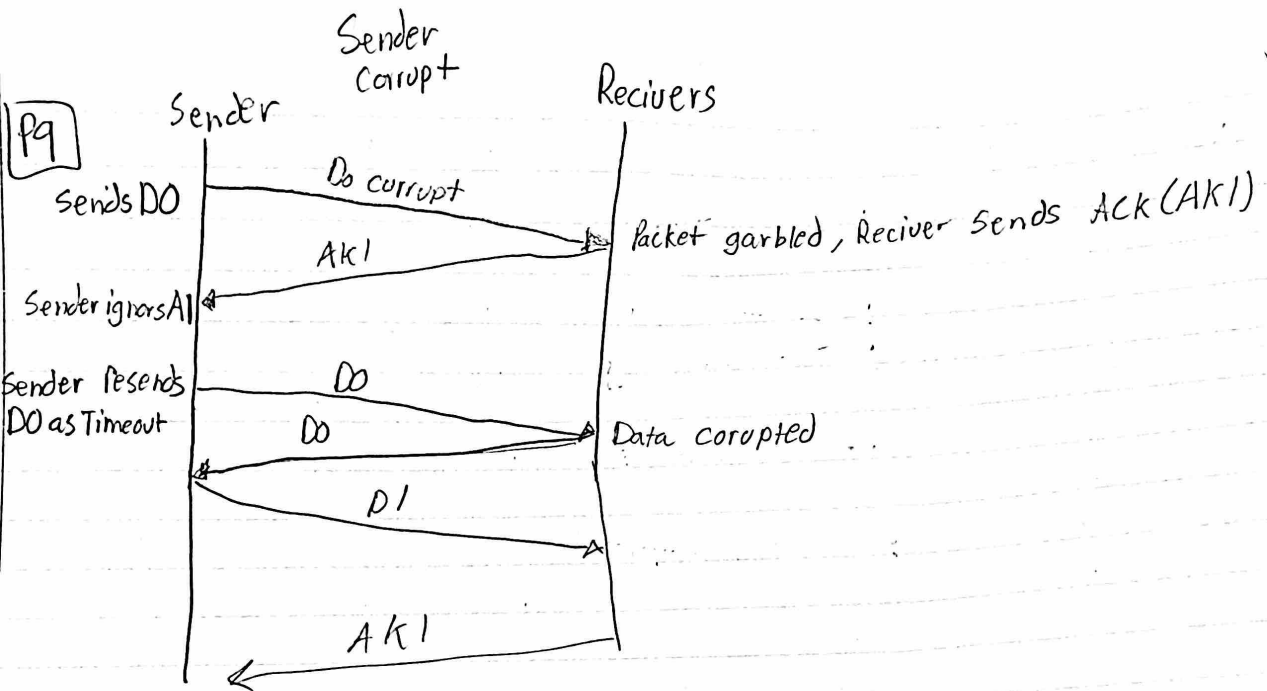 Sender
Corrupt
Sender
Recivers
P9
Sends D0
D0 currupt
Packet garbled, Reciver Sends ACK (AK1)
AK1
Sender ignors A1
Sender Resends
D0 as Timeout
D0
D0
Data corupted
D1
AK1